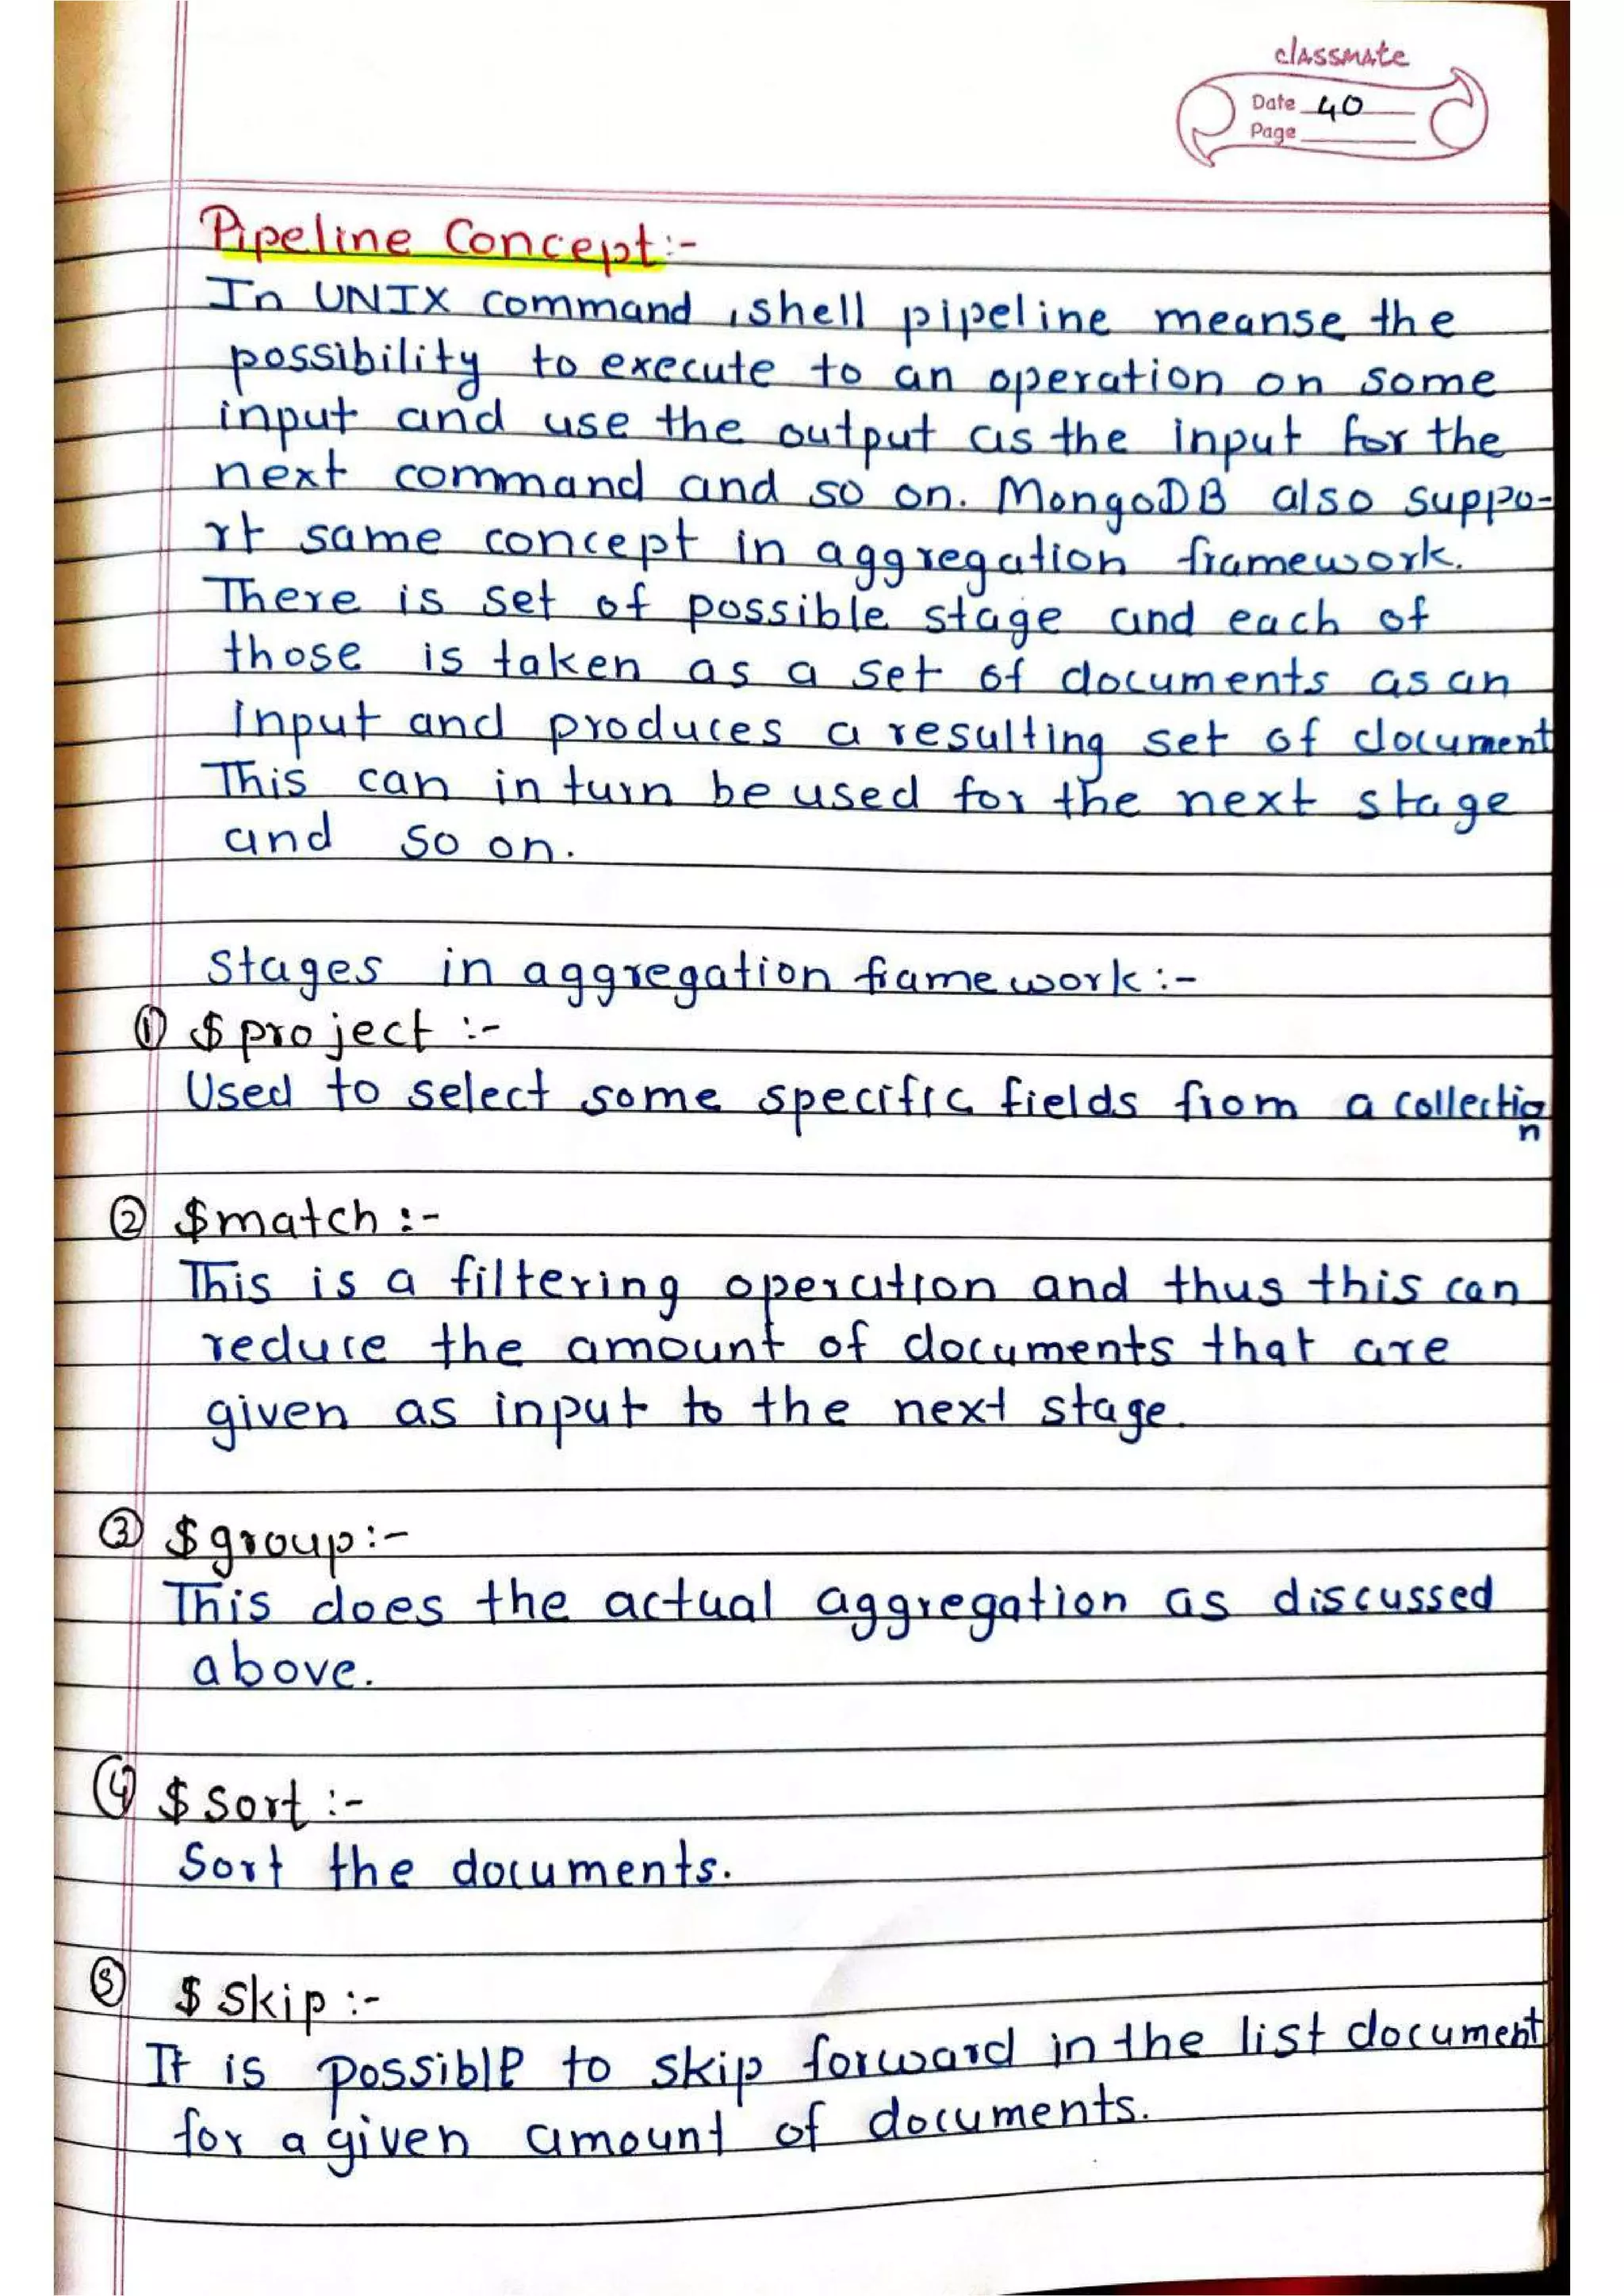 classmate
Date 40
Page
Pipeline Concept:-
In UNIX command, shell pipeline meanse the
possibility to execute to an operation on some
input and use the output as the input for the
next command and so on. MongoDB also suppo-
rt same concept in aggregation framework.
There is set of possible stage and each of
those is taken as a set of documents as an
input and produces a resulting set of document
This can in turn be used for the next stage
and so on.
Stages in aggregation framework:-
① $project :-
Used to select some specific fields from a collectio
n
② $match :-
This is a filtering operation and thus this can
reduce the amount of documents that are
given as input to the next stage.
③ $group:-
This does the actual aggregation as discussed
above.
④ $sort :-
Sort the documents.
⑤ $skip :-
It is possible to skip forward in the list document
for a given amount of documents.